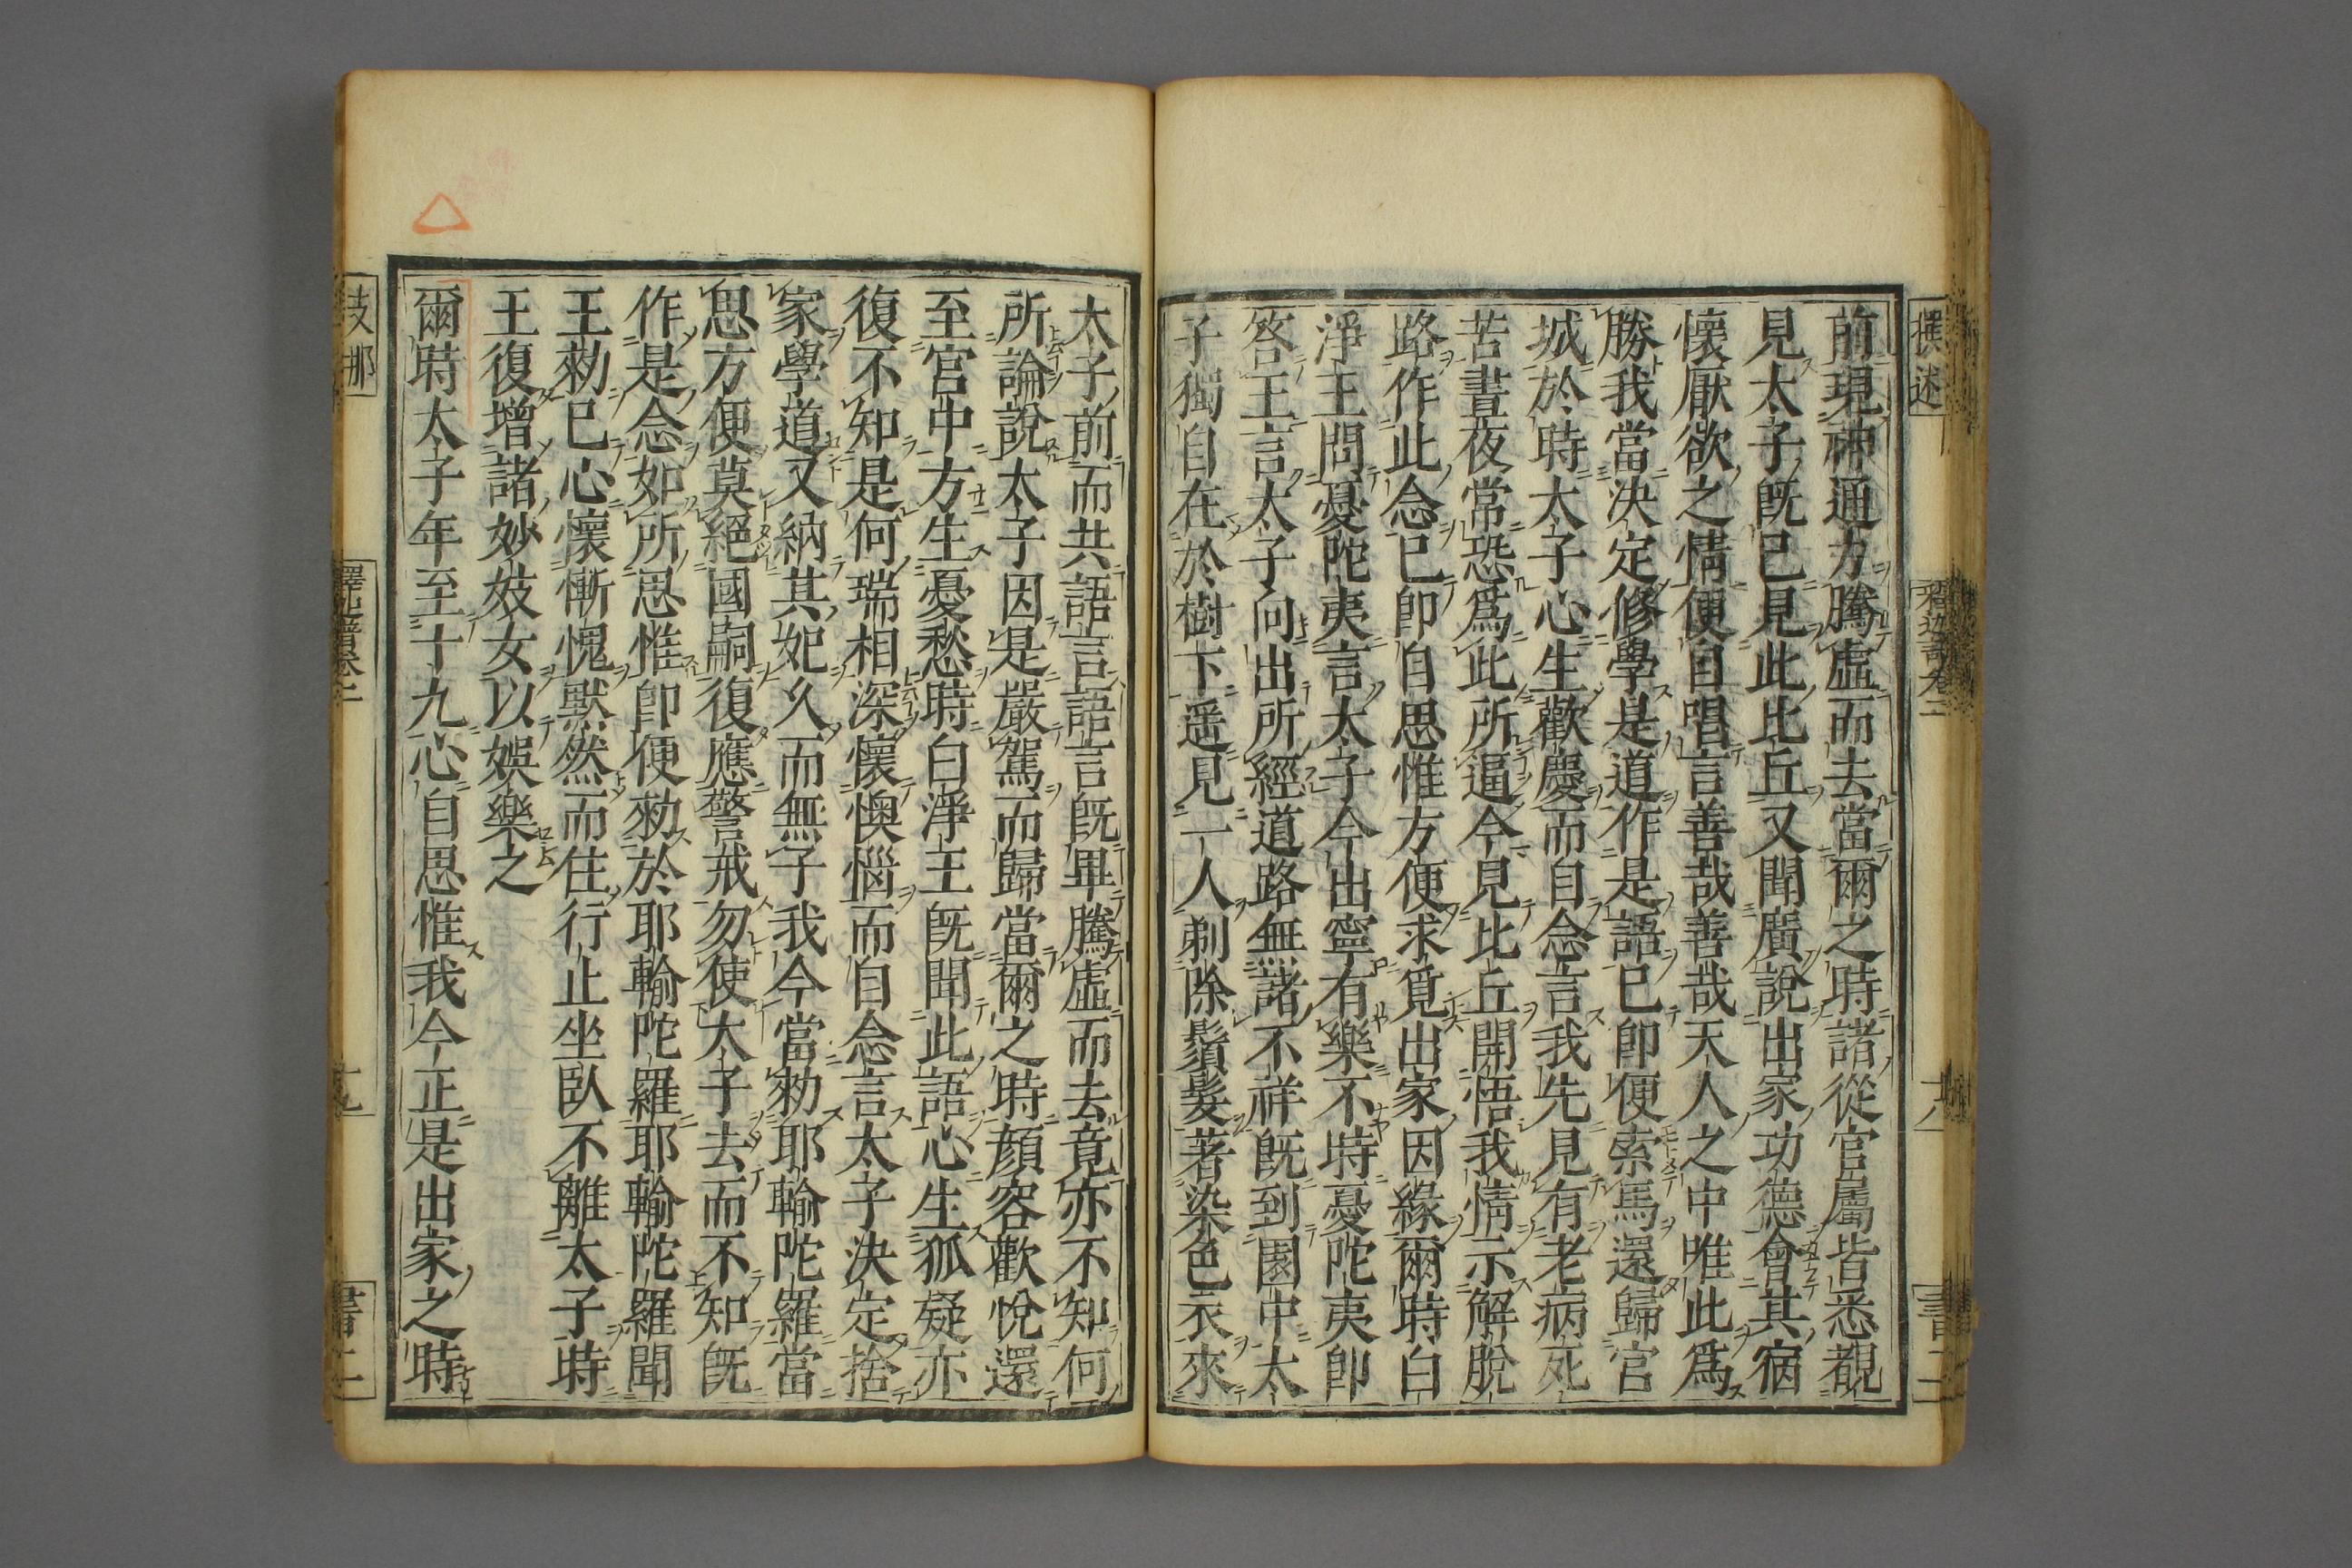 撰述
釋迦譜卷二
十八
書二
前現神通力騰虛而去當爾之時諸從官屬皆悉覩
見太子既已見此比丘又聞廣說出家功德會其宿
懷厭欲之情便自唱言善哉善哉天人之中唯此爲
勝我當決定修學是道作是語已即便索馬還歸宮
城於時太子心生歡慶而自念言我先見有老病死
苦晝夜常恐爲此所逼今見比丘開悟我情示解脫
路作此念已即自思惟方便求覓出家因緣爾時白
淨王問憂陀夷言太子今出寧有樂不時憂陀夷即
答王言太子向出所經道路無諸不祥既到園中太
子獨自在於樹下遥見一人剃除鬚髮著染色衣來
太子前而共語言語言既畢騰虛而去竟亦不知何
所論說太子因是嚴駕而歸當爾之時顔容歡悅還
至宮中方生憂愁時白淨王既聞此語心生狐疑亦
復不知是何瑞相深懷懊惱而自念言太子決定捨
家學道又納其妃久而無子我今當勑耶輸陀羅當
思方便莫絕國嗣復應警戒勿使太子去而不知既
作是念如所思惟即便勑於耶輸陀羅耶輸陀羅聞
王勑已心懷慚愧默然而住行止坐臥不離太子時
王復增諸妙妓女以娛樂之
爾時太子年至十九心自思惟我今正是出家之時
支那
釋迦譜卷二
十九
書二